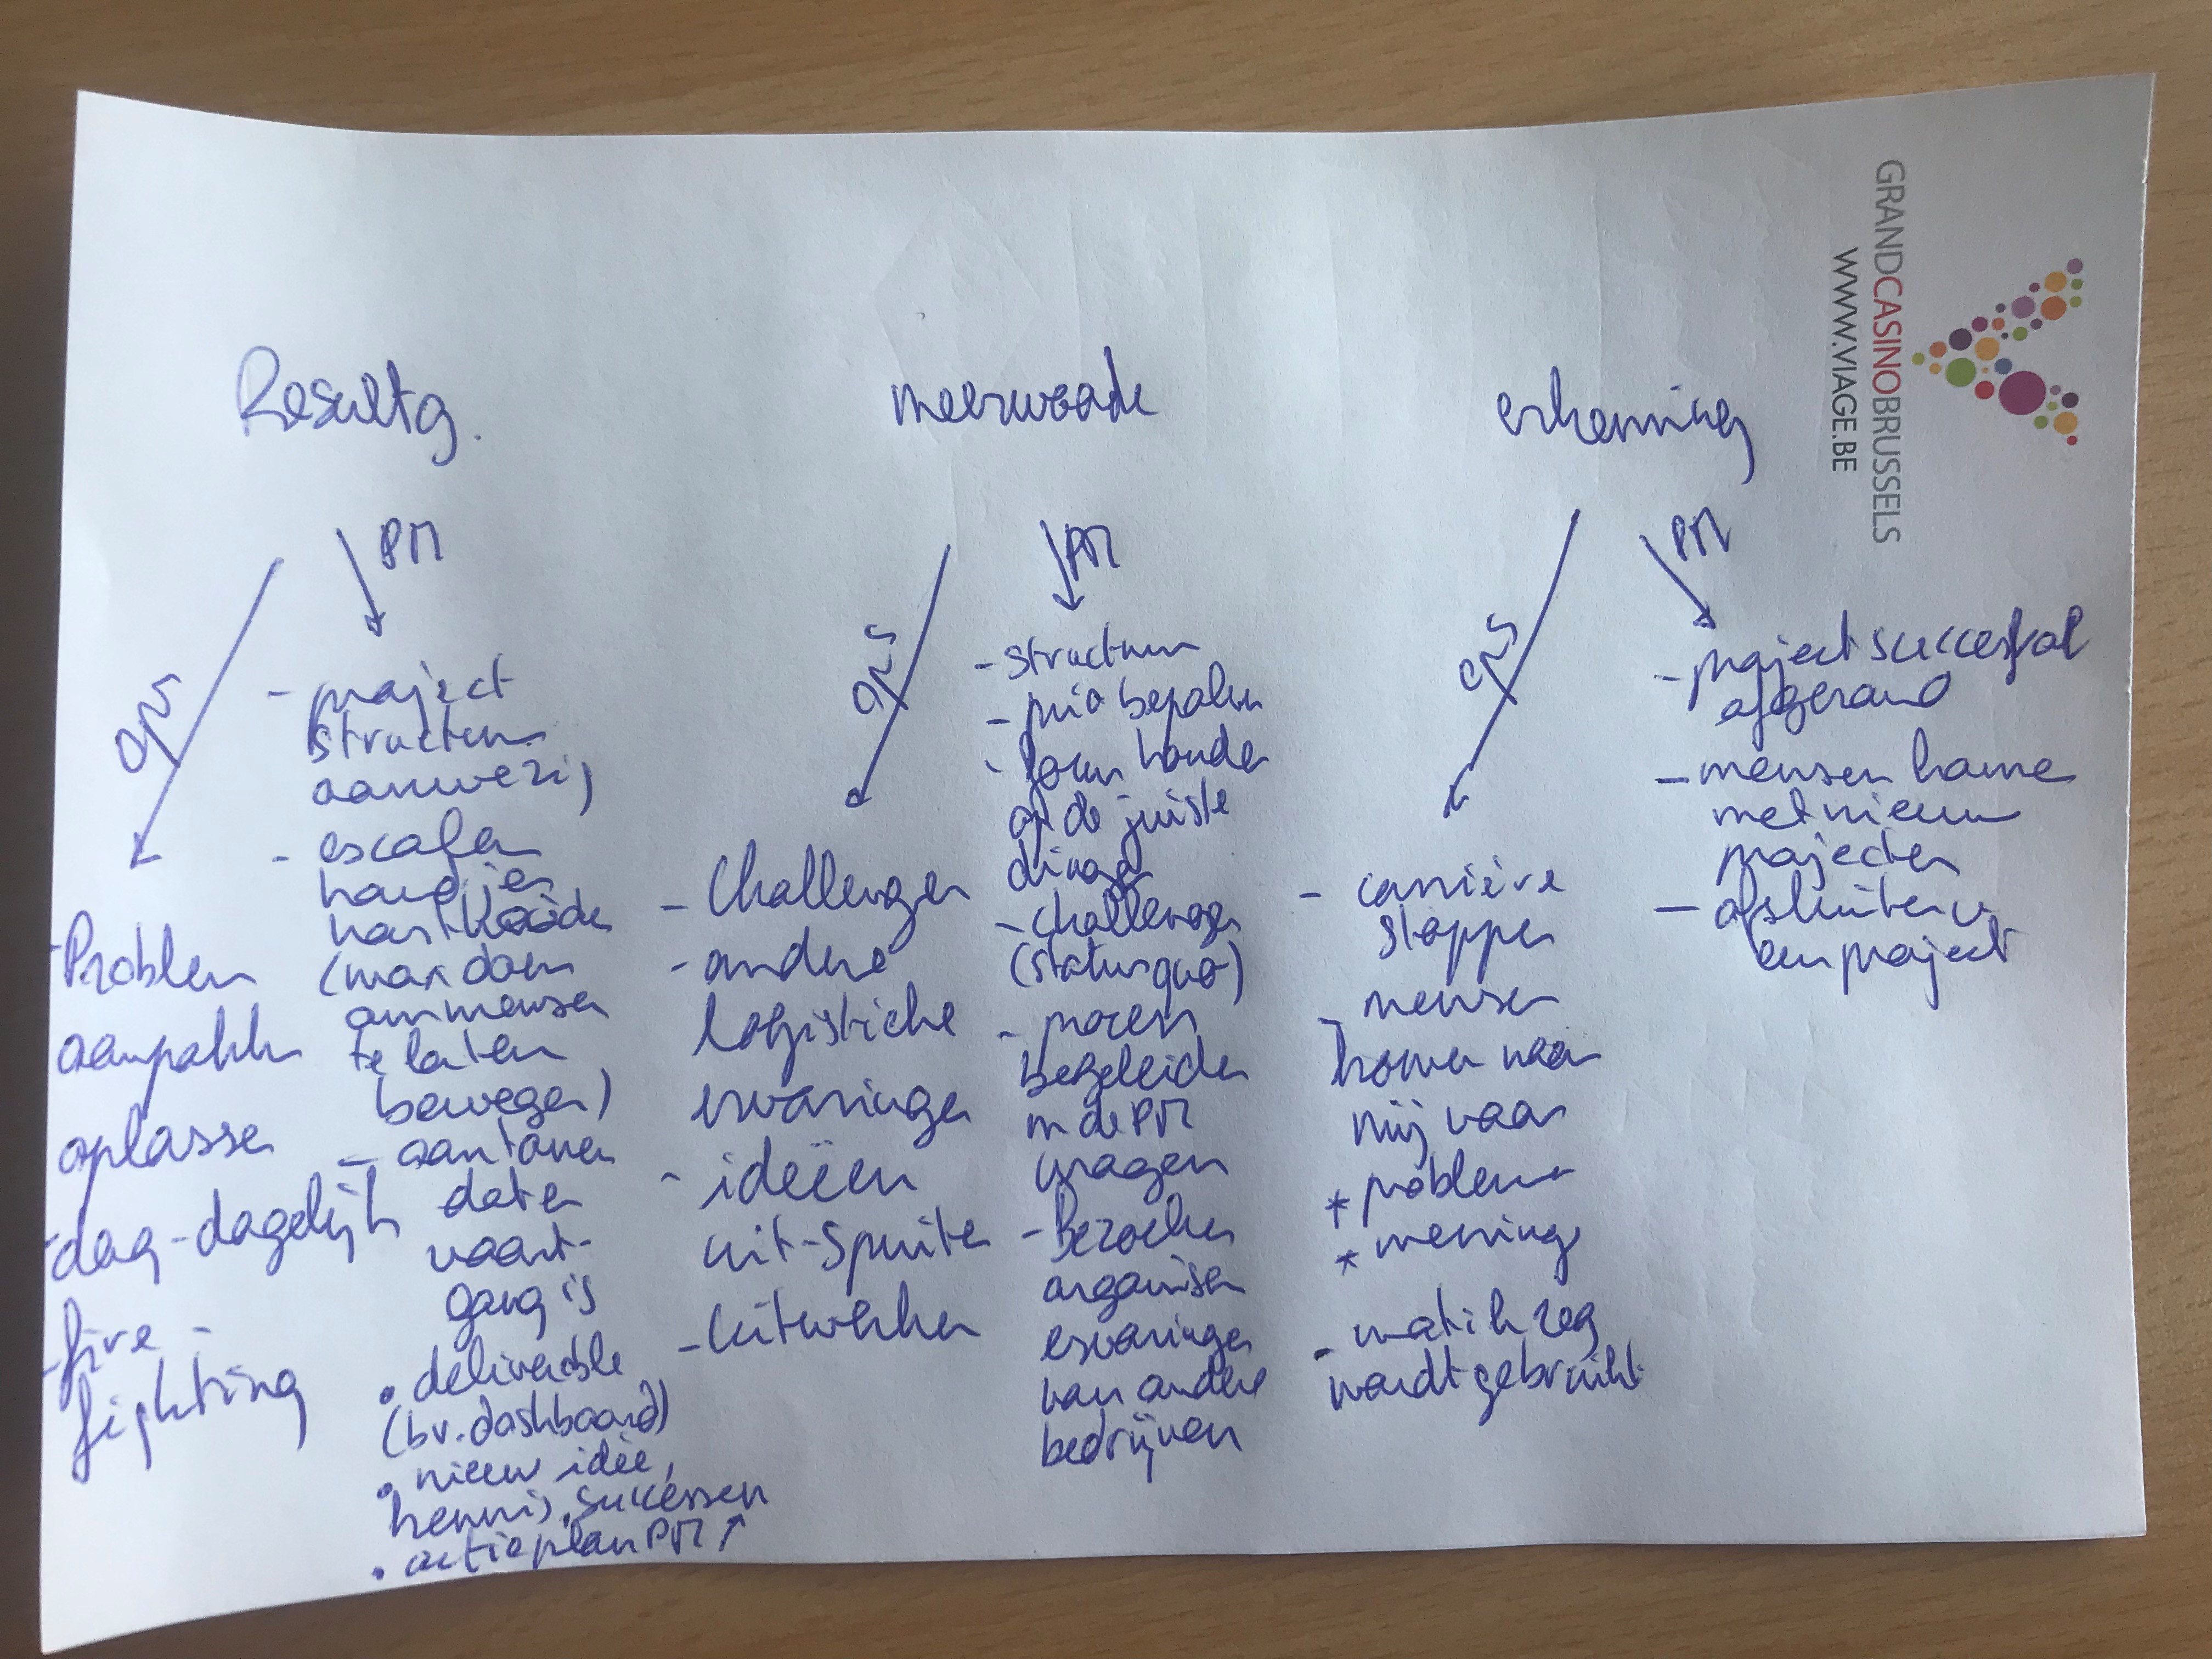 GRANDCASINOBRUSSELS
WWW.VIAGE.BE
Resultg.
OPS
PM
- Problem
aanpakken
oplossen
- dag-dagelijk
- fire -
fighting
- project
structuur
aanwezig
- escalen
(maxdoen
om mensen
te laten
bewegen)
- aantonen
dat er
vooruit-
gang is
• deliverable
(bv. dashboard)
• nieuw idee,
kennis, successen
• actieplan PM ↑
meerwaade
OPS
PM
- Challengen
- andere
logistieke
ervaringen
- ideëen
uit-spuiten
- uitwerken
- structuur
- prio bepalen
- focus houden
op de juiste
dingen
- challengen
(status quo)
- proces
begeleiden
in de PM
vragen
- Bezoeken
organiseren
ervaringen
van andere
bedrijven
erkenning
OPS
PM
- carrière
stappen
- mensen
komen naar
mij voor
* problemen
* mening
- wat ik zeg
wordt gebruikt
- project succesvol
afgerond
- mensen komen
met nieuwe
projecten
- afsluiten v.
een project